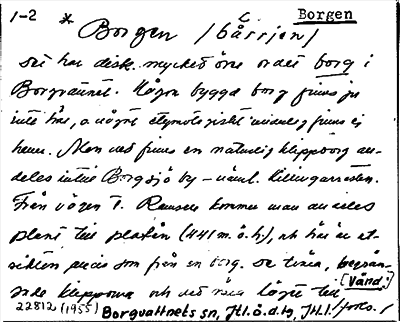 1-2 * Borgen
Borgen /bårrjen/
Det har disk. mycket över ordet borg i
Borgvattnet. Någon byggd borg finns ju
inte här, o något etymologiskt underlag finns ej
heller. Men det finns en naturlig klippborg all-
deles intill Borgsjö by – näml. Killingarasten.
Från vägen t. kommer man alldeles
plant till platån (441 m.ö.h.), och här är ut-
sikten precis som från en borg. De tvära, begrän-
sade klipporna och det låga läget till
[Vänd.]
22812 (1955) Borgvattnets sn, Jtl.ö.dtg, Jtl. /forts./